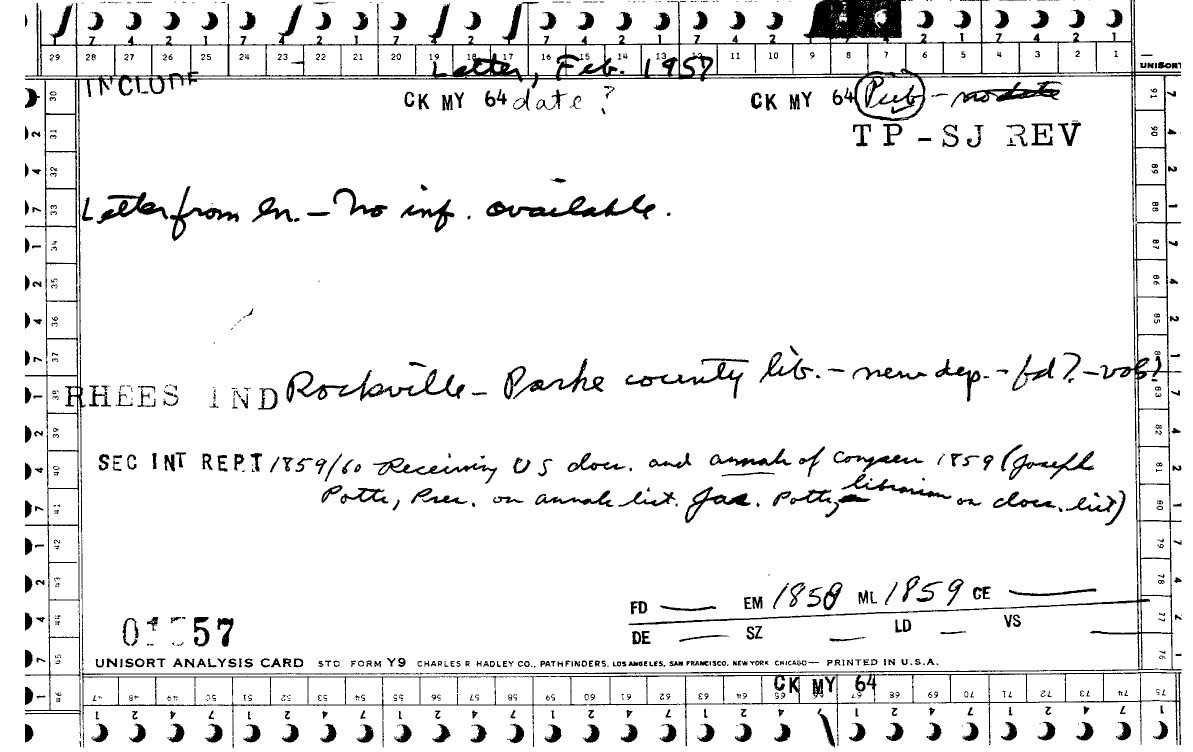 7 4 2 1 7 4 2 1 7 4 2 1 7 4 2 1 7 4 2 1 7 4 2 1
29 28 27 26 25 24 23 22 21 20 19 18 17 16 15 14 13 12 11 10 9 8 7 6 5 4 3 2 1
UNISORT
INCLUDE
Letter, Feb. 1957
CK MY 64 date? CK MY 64 Pub - no date
TP-SJ REV
Letter from ln. - No inf. available.
RHEES IND Rockville - Parke county lib. - new dep. - fd? - vols?
SEC INT REPT 1859/60 Receiving US docs. and annals of Congress 1859 (Joseph
Potts, Pres. on annals list. Jas. Potts, librarian on docs. list)
FD EM 1858 ML 1859 CE
DE SZ LD VS
57
UNISORT ANALYSIS CARD STD FORM Y9 CHARLES R HADLEY CO., PATHFINDERS, LOS ANGELES, SAN FRANCISCO, NEW YORK CHICAGO — PRINTED IN U.S.A.
CK MY 64
47 48 49 50 51 52 53 54 55 56 57 58 59 60 61 62 63 64 65 66 67 68 69 70 71 72 73 74 75
1 2 4 7 1 2 4 7 1 2 4 7 1 2 4 7 1 2 4 7 1 2 4 7 1 2 4 7 1